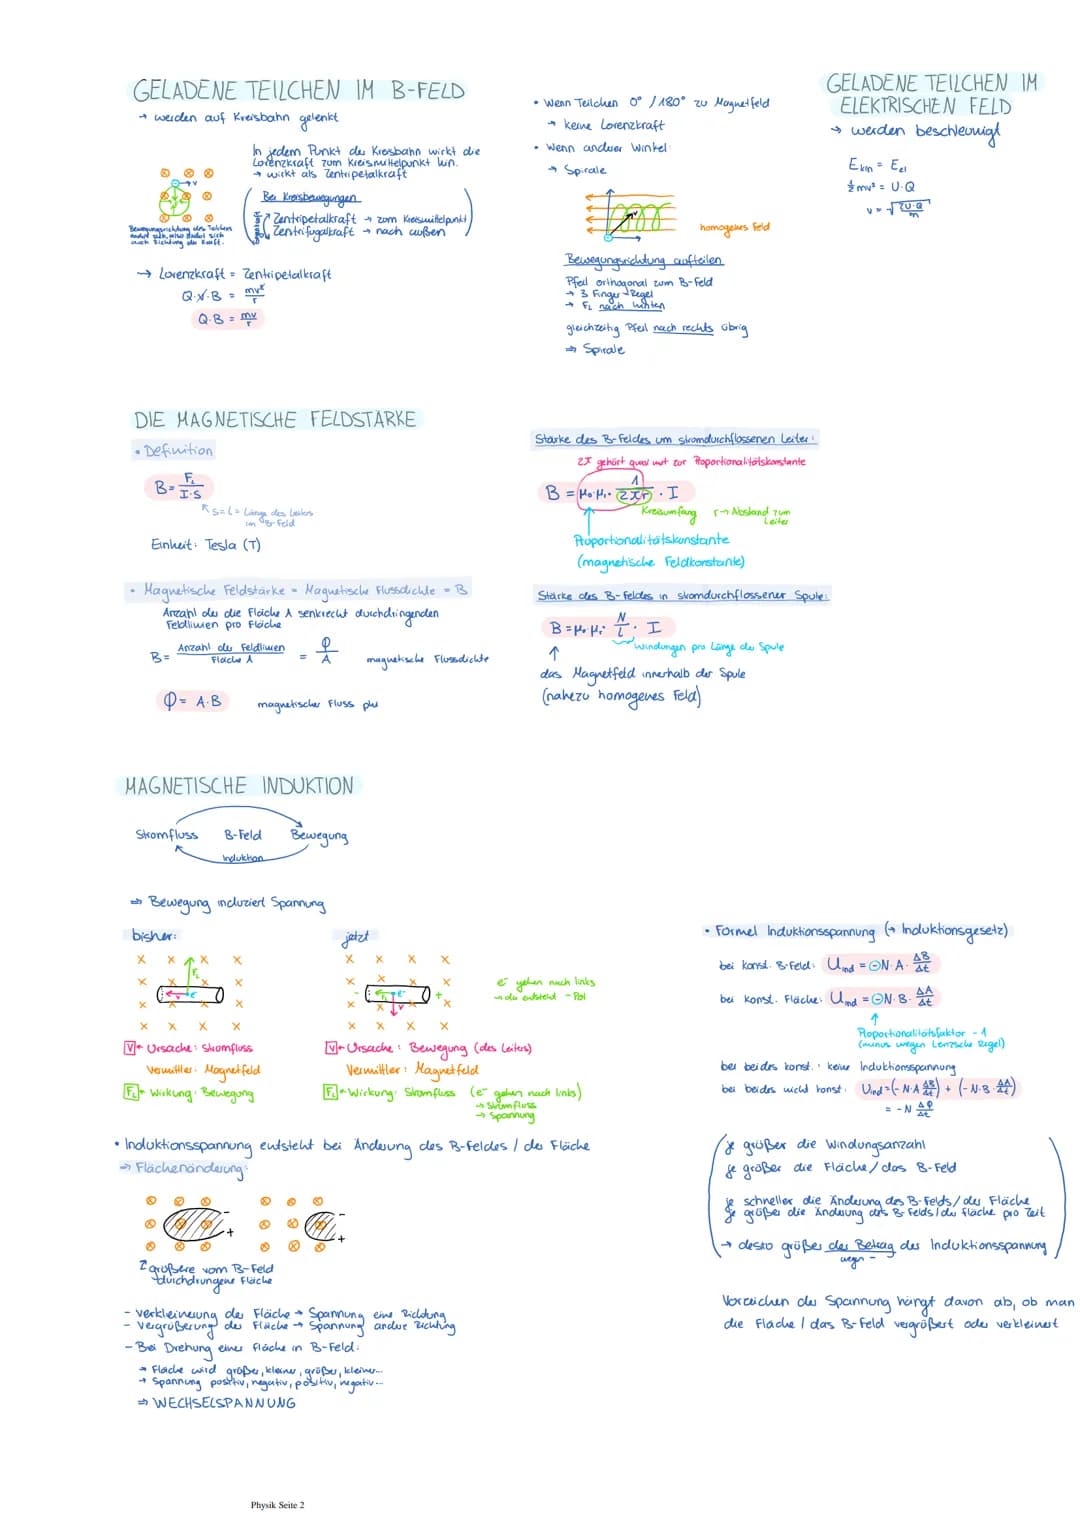 GELADENE TEILCHEN IM B-FELD
→ werden auf Kreisbahn gelenkt
In jedem Punkt der Kreisbahn wirkt die
Lorenzkraft zum Kreismittelpunkt hin.
→ wirkt als Zentripetalkraft
Bei Kreisbewegungen
Zentripetalkraft → zum Kreismittelpunkt
Zentrifugalkraft → nach außen
v
Bewegungsrichtung des Teilchens
ändert sich, also ändert sich
auch Richtung der Kraft.
→ Lorenzkraft = Zentripetalkraft
Q·v·B = mv²/r
Q·B = mv/r
• Wenn Teilchen 0° / 180° zu Magnetfeld
→ keine Lorenzkraft
• Wenn anderer Winkel:
→ Spirale
v
homogenes Feld
Bewegungsrichtung aufteilen
Pfeil orthogonal zum B-Feld
→ 3 Finger-Regel
→ FL nach hinten
gleichzeitig Pfeil nach rechts übrig
⇒ Spirale
GELADENE TEILCHEN IM
ELEKTRISCHEN FELD
→ werden beschleunigt
Ekin = Eel
½mv² = U·Q
v = √(2U·Q/m)
DIE MAGNETISCHE FELDSTÄRKE
• Definition
B = FL/(I·S)
S = L = Länge des Leiters
im B-Feld
Einheit: Tesla (T)
• Magnetische Feldstärke = Magnetische Flussdichte = B
Anzahl der die Fläche A senkrecht durchdringenden
Feldlinien pro Fläche
B = Anzahl der Feldlinien/Fläche A = Φ/A magnetische Flussdichte
Φ = A·B magnetischer Fluss phi
Stärke des B-Feldes um stromdurchflossenen Leiter:
2π gehört quasi mit zur Proportionalitätskonstante
B = μ₀·μr· 1/(2πr) · I
Kreisumfang r → Abstand zum
Leiter
Proportionalitätskonstante
(magnetische Feldkonstante)
Stärke des B-Feldes in stromdurchflossener Spule:
B = μ₀·μr· N/l · I
Windungen pro Länge der Spule
↑
das Magnetfeld innerhalb der Spule
(nahezu homogenes Feld)
MAGNETISCHE INDUKTION
Stromfluss B-Feld Bewegung
Induktion
⇒ Bewegung induziert Spannung
bisher: jetzt
FL
v e⁻
- FL e⁻ +
v
e⁻ gehen nach links
→ da entsteht - Pol
V ← Ursache: Stromfluss
Vermittler: Magnetfeld
FL ← Wirkung: Bewegung
V ← Ursache: Bewegung (des Leiters)
Vermittler: Magnetfeld
FL ← Wirkung: Stromfluss (e⁻ gehen nach links)
→ Stromfluss
→ Spannung
• Induktionsspannung entsteht bei Änderung des B-Feldes / der Fläche
⇒ Flächenänderung:
- +
- +
größere vom B-Feld
durchdrungene Fläche
- Verkleinerung der Fläche → Spannung eine Richtung
- Vergrößerung der Fläche → Spannung andere Richtung
- Bei Drehung einer Fläche in B-Feld:
→ Fläche wird größer, kleiner, größer, kleiner...
→ Spannung positiv, negativ, positiv, negativ...
⇒ WECHSELSPANNUNG
• Formel Induktionsspannung (→ Induktionsgesetz)
bei konst. B-Feld: Uind = -N·A· ΔB/Δt
bei konst. Fläche: Uind = -N·B· ΔA/Δt
↑
Proportionalitätsfaktor -1
(minus wegen Lenzsche Regel)
bei beides konst.: keine Induktionsspannung
bei beides nicht konst. Uind = (-N·A ΔB/Δt) + (-N·B· ΔA/Δt)
= -N ΔΦ/Δt
je größer die Windungsanzahl
je größer die Fläche / das B-Feld
je schneller die Änderung des B-Felds / der Fläche
je größer die Änderung des B-Felds / der Fläche pro Zeit
→ desto größer der Betrag der Induktionsspannung
wegen -
Vorzeichen der Spannung hängt davon ab, ob man
die Fläche / das B-Feld vergrößert oder verkleinert
Physik Seite 2